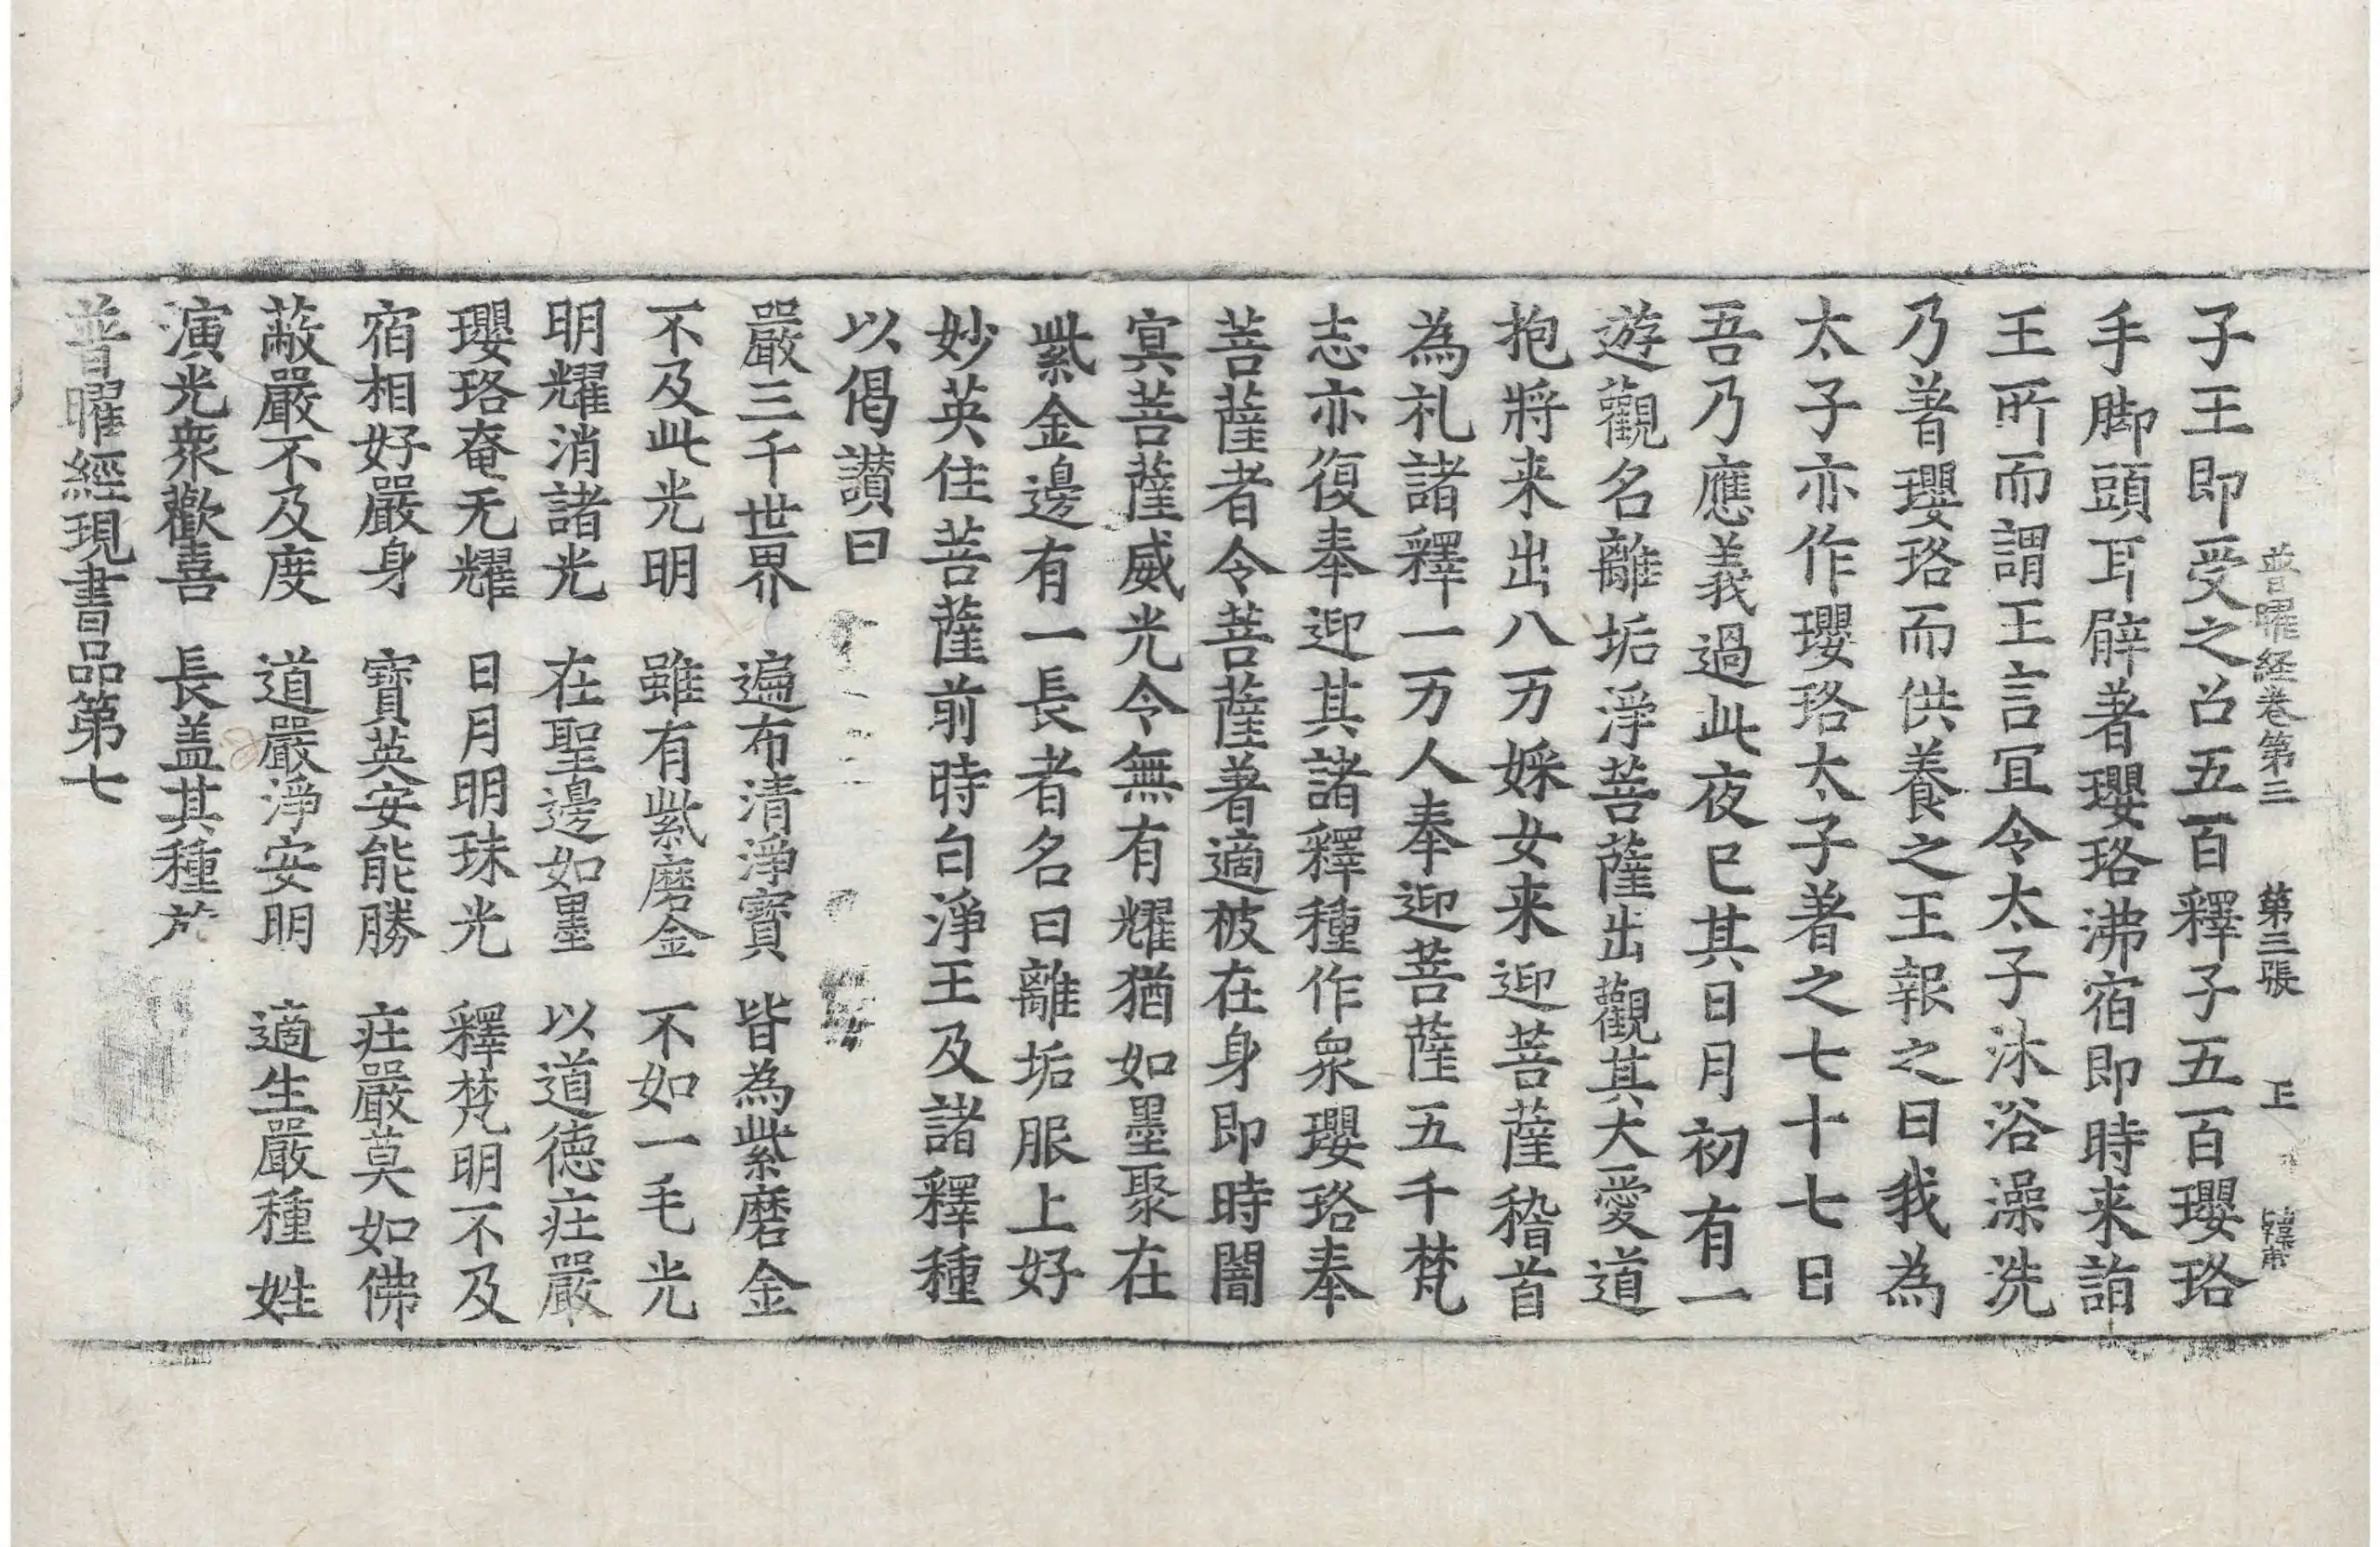 普曜経卷第三 第三張 上
子王即受之召五百釋子五百瓔珞
手脚頭耳臂著瓔珞沸宿即時来詣
王所而謂王言冝令太子沐浴澡洗
乃著瓔珞而供養之王報之曰我為
太子亦作瓔珞太子著之七十七日
吾乃應義過此夜已其日月初有一
遊觀名離垢淨菩薩出觀其大愛道
抱將来出八万婇女来迎菩薩稽首
為礼諸釋一万人奉迎菩薩五千梵
志亦復奉迎其諸釋種作衆瓔珞奉
菩薩者令菩薩著適被在身即時闇
冥菩薩威光令無有耀猶如墨聚在
紫金邊有一長者名曰離垢服上好
妙英住菩薩前時白淨王及諸釋種
以偈讃曰
嚴三千世界 遍布清淨寳 皆為紫磨金
不及此光明 雖有紫磨金 不如一毛光
明耀消諸光 在聖邊如墨 以道德㽵嚴
瓔珞奄无耀 日月明珠光 釋梵明不及
宿相好嚴身 寶英安能勝 㽵嚴莫如佛
蔽嚴不及度 道嚴淨安明 適生嚴種姓
演光衆歡喜 長盖其種於
普曜經現書品第七